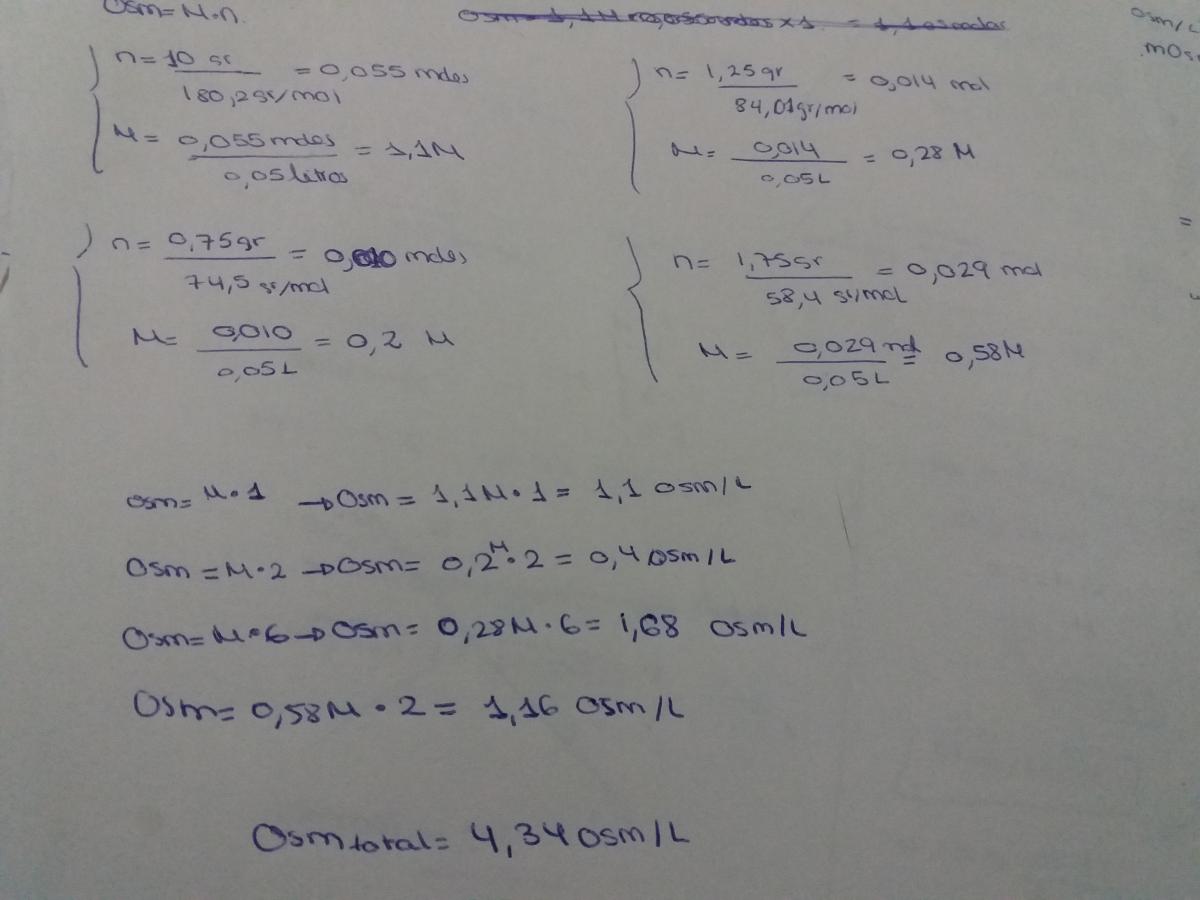 Osm = M·n.
Osm/L
mOs
n = 10 gr / 180,2 gr/mol = 0,055 moles
M = 0,055 moles / 0,05 litros = 1,1M
n = 1,25 gr / 84,01 gr/mol = 0,014 mol
M = 0,014 / 0,05 L = 0,28 M
n = 0,75 gr / 74,5 gr/mol = 0,010 moles
M = 0,010 / 0,05 L = 0,2 M
n = 1,75 gr / 58,4 gr/mol = 0,029 mol
M = 0,029 mol / 0,05 L = 0,58M
=
Osm = M·1 → Osm = 1,1M·1 = 1,1 Osm/L
Osm = M·2 → Osm = 0,2 M·2 = 0,4 Osm/L
Osm = M·6 → Osm = 0,28M·6 = 1,68 Osm/L
Osm = 0,58M·2 = 1,16 Osm/L
Osm total = 4,34 Osm/L